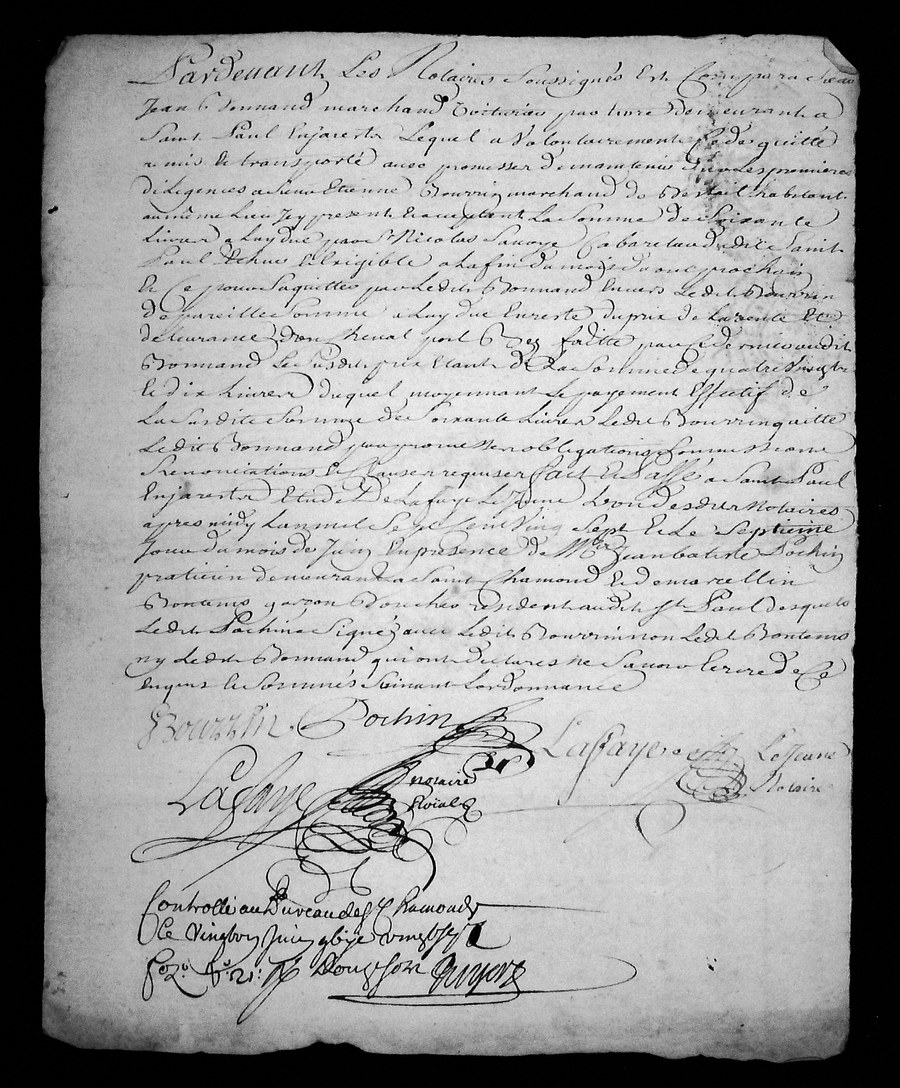 Pardevant Les Notaires Soussignés Est Comparu Sieur
Jean Bonnand marchand Voiturier par terre Demeurant a
Saint Paul Enjarests Lequel a Volontairement Cédé quitté
remis Et transporté avec promesse de maintenir Sur Les premieres
diligences a Sieur Etienne Bourrin marchand de Habitant
au même Lieu Icy present Et acceptant La Somme de Soixante
Livres a Luy due par Nicolas Savoye Cabaretier dudit Saint
Paul Echue Et Exigible a La fin du mois prochain
Et Ce pour Saquitter par Ledit Bonnand Envers Ledit Bourrin
de pareille Somme a Luy due En reste du prix de La Vente Et
delivrance D'un Cheval poil Bey faitte par Ce dernier audit
Bonnand Le Susdit prix Etant de La Somme de quatre Vingts
Et dix Livres duquel moyennant Le payement Effectif de
La Susdite Somme de Soixante Livres Ledit Bourrin quitte
Ledit Bonnand par promesses obligations Soumissions
Renonciations Et Clauses requises fait Et Passé a Saint Paul
Enjarests Etude De Lafaye Le Jeune L'un des dits Notaires
apres midy Lan mil Sept Cent Vingt Sept Et Le Septieme
Jour du mois de Juin En presence de Jean batiste Pochin
praticien demeurant a Saint Chamond Et de marcellin
Bontems garçon residant audit St Paul desquels
Ledit Pochin a Signé avec Ledit Bourrin non Ledit Bontems
ny Ledit Bonnand qui ont declarés ne Savoir Ecrire de Ce
Enquis Et Sommés Suivant Lordonnance
Bourrin. Pochin
Lafaye LeJeune
Notaire
Lafaye notaire
Roial
Controllé au Bureau de St Chamond
Ce Vingt Juin